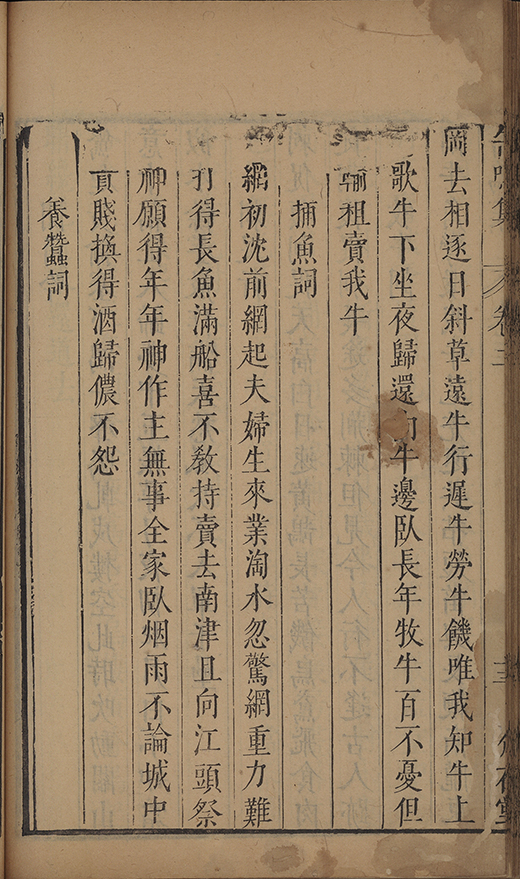 岡去相逐日斜草遠牛行遲牛勞牛饑唯我知牛上
歌牛下坐夜歸還向牛邊臥長年牧牛百不憂但
輸租賣我牛
捕魚詞
網初沈前網起夫婦生來業淘水忽驚網重力難
打得長魚滿船喜不敎持賣去南津且向江頭祭
神願得年年神作主無事全家臥烟雨不論城中
賤換得酒歸儂不怨
養蠶詞